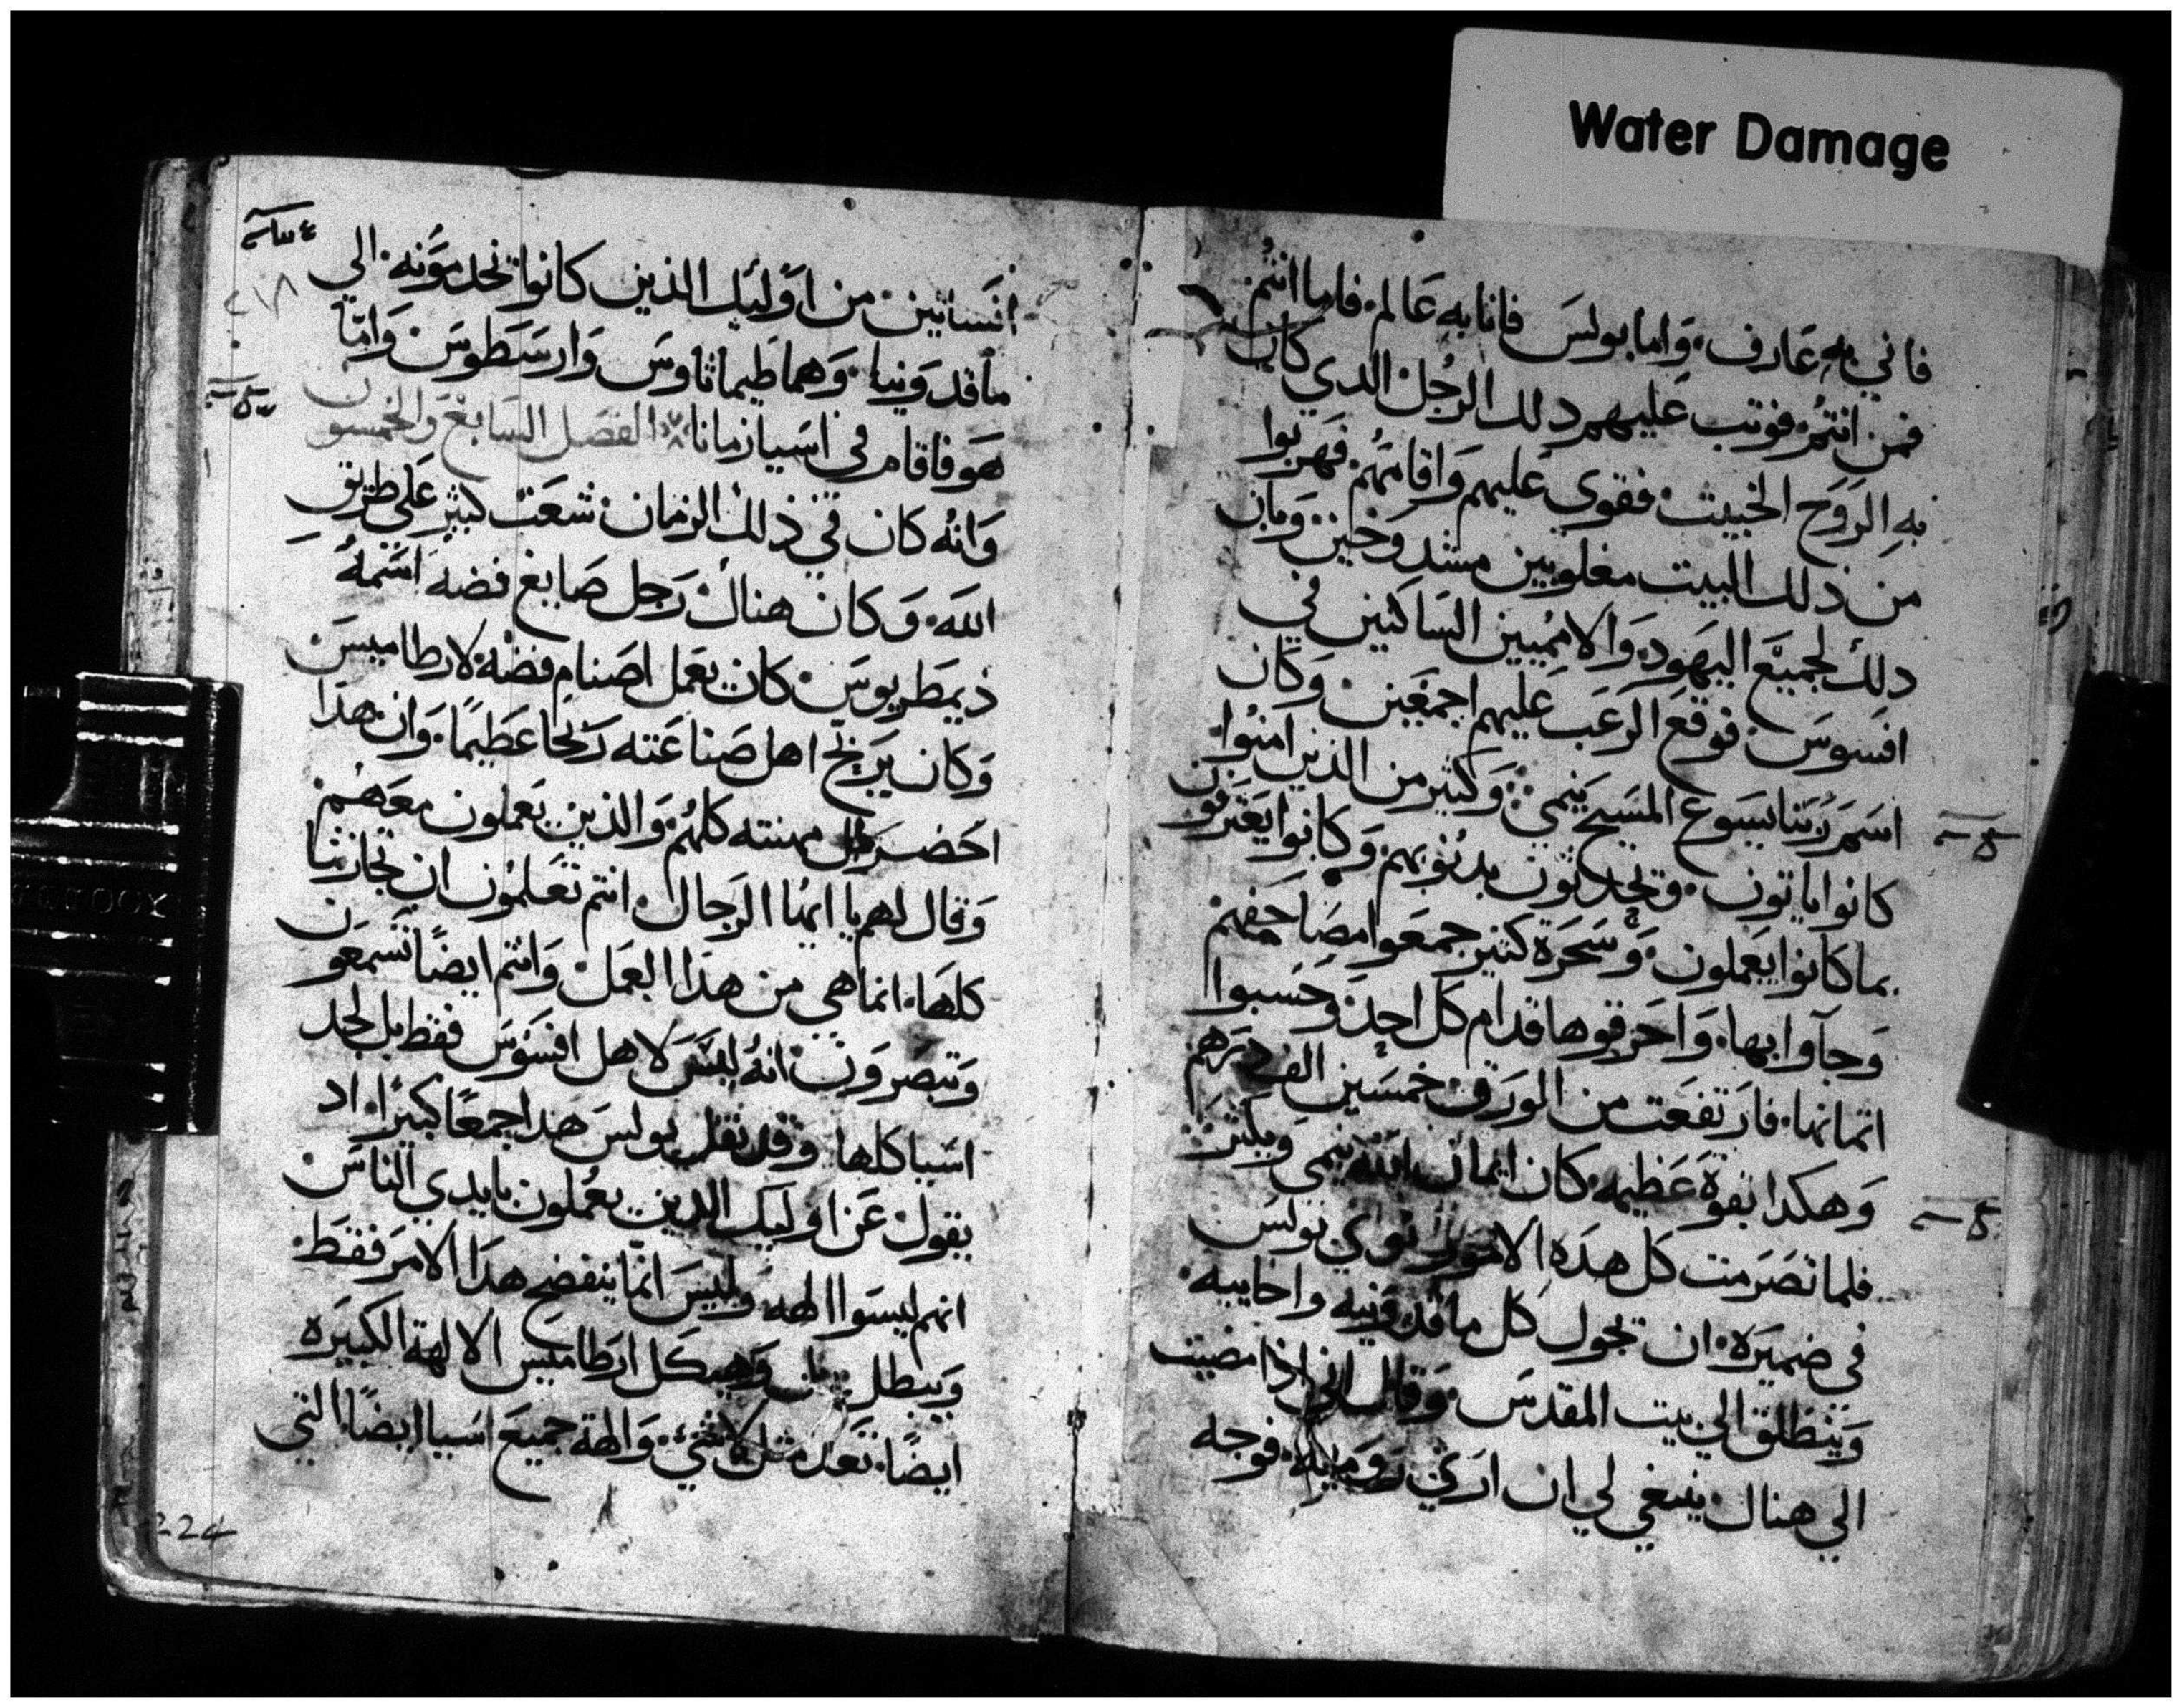 Water Damage
فاني به عارف. واما بولس فانا به عالم. فاما انتم
فمن انتم. فوتب عليهم دلك الرجل الدي كان
به الروح الخبيث. فقوي عليهم واقامهم. فهربوا
من ذلك البيت مغلوبين مشدوخين. وبان
دلك لجميع اليهود. والاميين الساكنين في
افسوس. فوقع الرعب عليهم اجمعين. وكان
اسم ربنا يسوع المسيح ينمي. وكثير من الذين امنوا
كانوا ياتون. وتحدثون بدنوبهم. وكانوا يعترفون
بما كانوا يعملون. وسحرة كتير جمعوا مصاحفهم
وجآوا بها. واحرقوها قدام كل احد. وحسبوا
اتمانها. فارتفعت من الورق خمسين الف درهم
وهكدا بقوة عظيمه. كان ايمان الله ينمي ويكتر
فلما تصرمت كل هده الامور نوي بولس
في ضميره. ان تجول كل ماقدونيه واخاييه.
وينطلق الي بيت المقدس. وقال اني اذا مضيت
الي هناك ينبغي لي ان اري روميه. فوجه
انسانين. من اوليك الذين كانوا تخدمونه. الي
ماقدونيا. وهما طيماثاوس وارسطوس. واما
هو فاقام في اسيا زمانا. الفصل السابع والخمسون
وانه كان في ذلك الزمان. شعت كبير علي طريق
الله. وكان هناك رجل صايغ فضه اسمه
ذيمطريوس. كان يعمل اصنام فضة لارطاميس
وكان يربح اهل صناعته ربحا عظيما. وان هدا
احضر مهنته كلهم. والذين يعملون معهم
وقال لهم يا ايها الرجال. انتم تعلمون ان تجارتنا
كلها. انما هي من هذا العمل. وانتم ايضا تسمعون
وتبصرون. انه ليس لاهل افسوس فقط بل لجل
اسيا كلها وقد نقل بولس هدا جمعا كبيرا. اد
يقول عن اوليك الدين يعملون بايدي الناس
انهم ليسوا الهه وليس انما ينفضح هدا الامر فقط.
ويبطل وهيكل ارطاميس الالهة الكبيره
ايضا. تعد مثل لا شي. والهة جميع اسيا ايضا التي
224